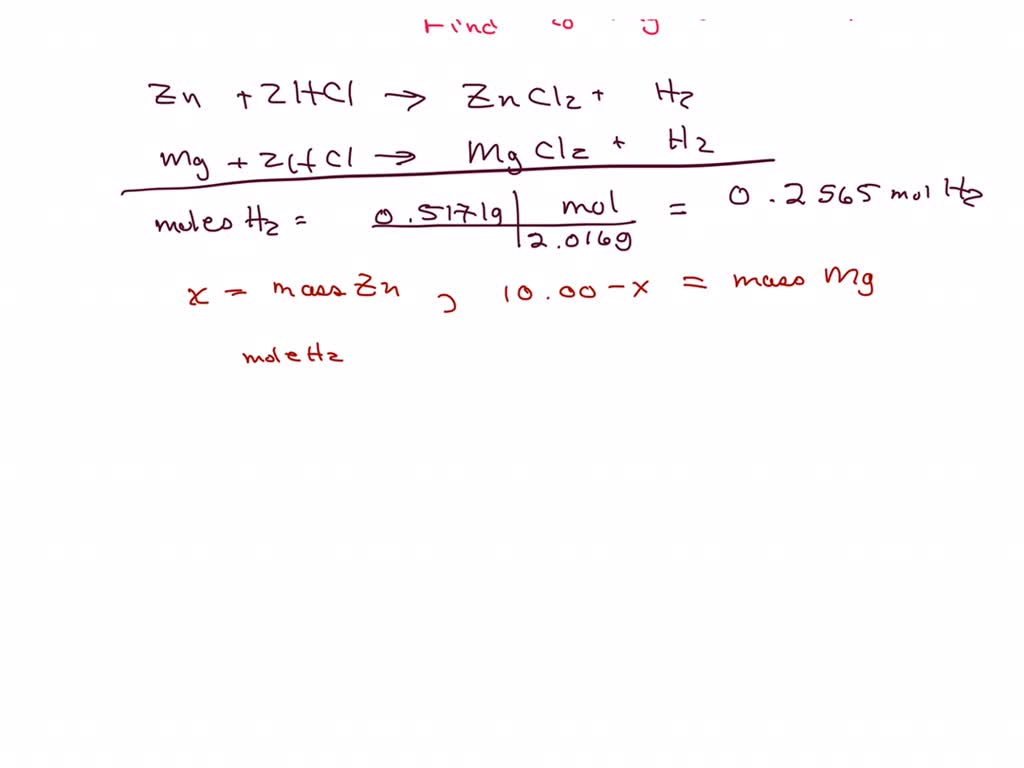 Find
Zn + 2HCl → ZnCl2 + H2
Mg + 2HCl → MgCl2 + H2
moles H2 = 0.5171g | mol / 2.016g = 0.2565 mol H2
x = mass Zn , 10.00 - x = mass Mg
mole H2